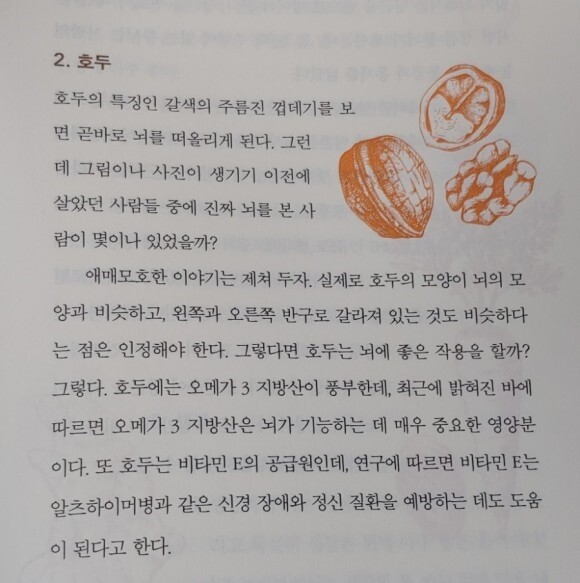 2. 호두
호두의 특징인 갈색의 주름진 껍데기를 보
면 곧바로 뇌를 떠올리게 된다. 그런
데 그림이나 사진이 생기기 이전에
살았던 사람들 중에 진짜 뇌를 본 사
람이 몇이나 있었을까?
애매모호한 이야기는 제쳐 두자. 실제로 호두의 모양이 뇌의 모
양과 비슷하고, 왼쪽과 오른쪽 반구로 갈라져 있는 것도 비슷하다
는 점은 인정해야 한다. 그렇다면 호두는 뇌에 좋은 작용을 할까?
그렇다. 호두에는 오메가 3 지방산이 풍부한데, 최근에 밝혀진 바에
따르면 오메가 3 지방산은 뇌가 기능하는 데 매우 중요한 영양분
이다. 또 호두는 비타민 E의 공급원인데, 연구에 따르면 비타민 E는
알츠하이머병과 같은 신경 장애와 정신 질환을 예방하는 데도 도움
이 된다고 한다.